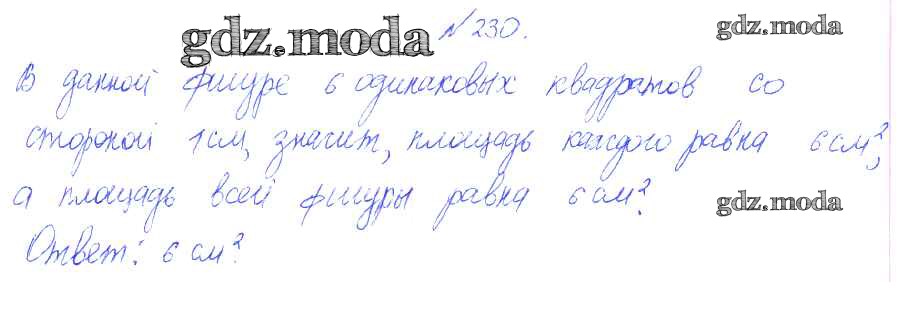 gdz.moda № 230. gdz.moda
В данной фигуре 6 одинаковых квадратов со
стороной 1 см, значит, площадь каждого равна 6 см²,
а площадь всей фигуры равна 6 см². gdz.moda
Ответ: 6 см².